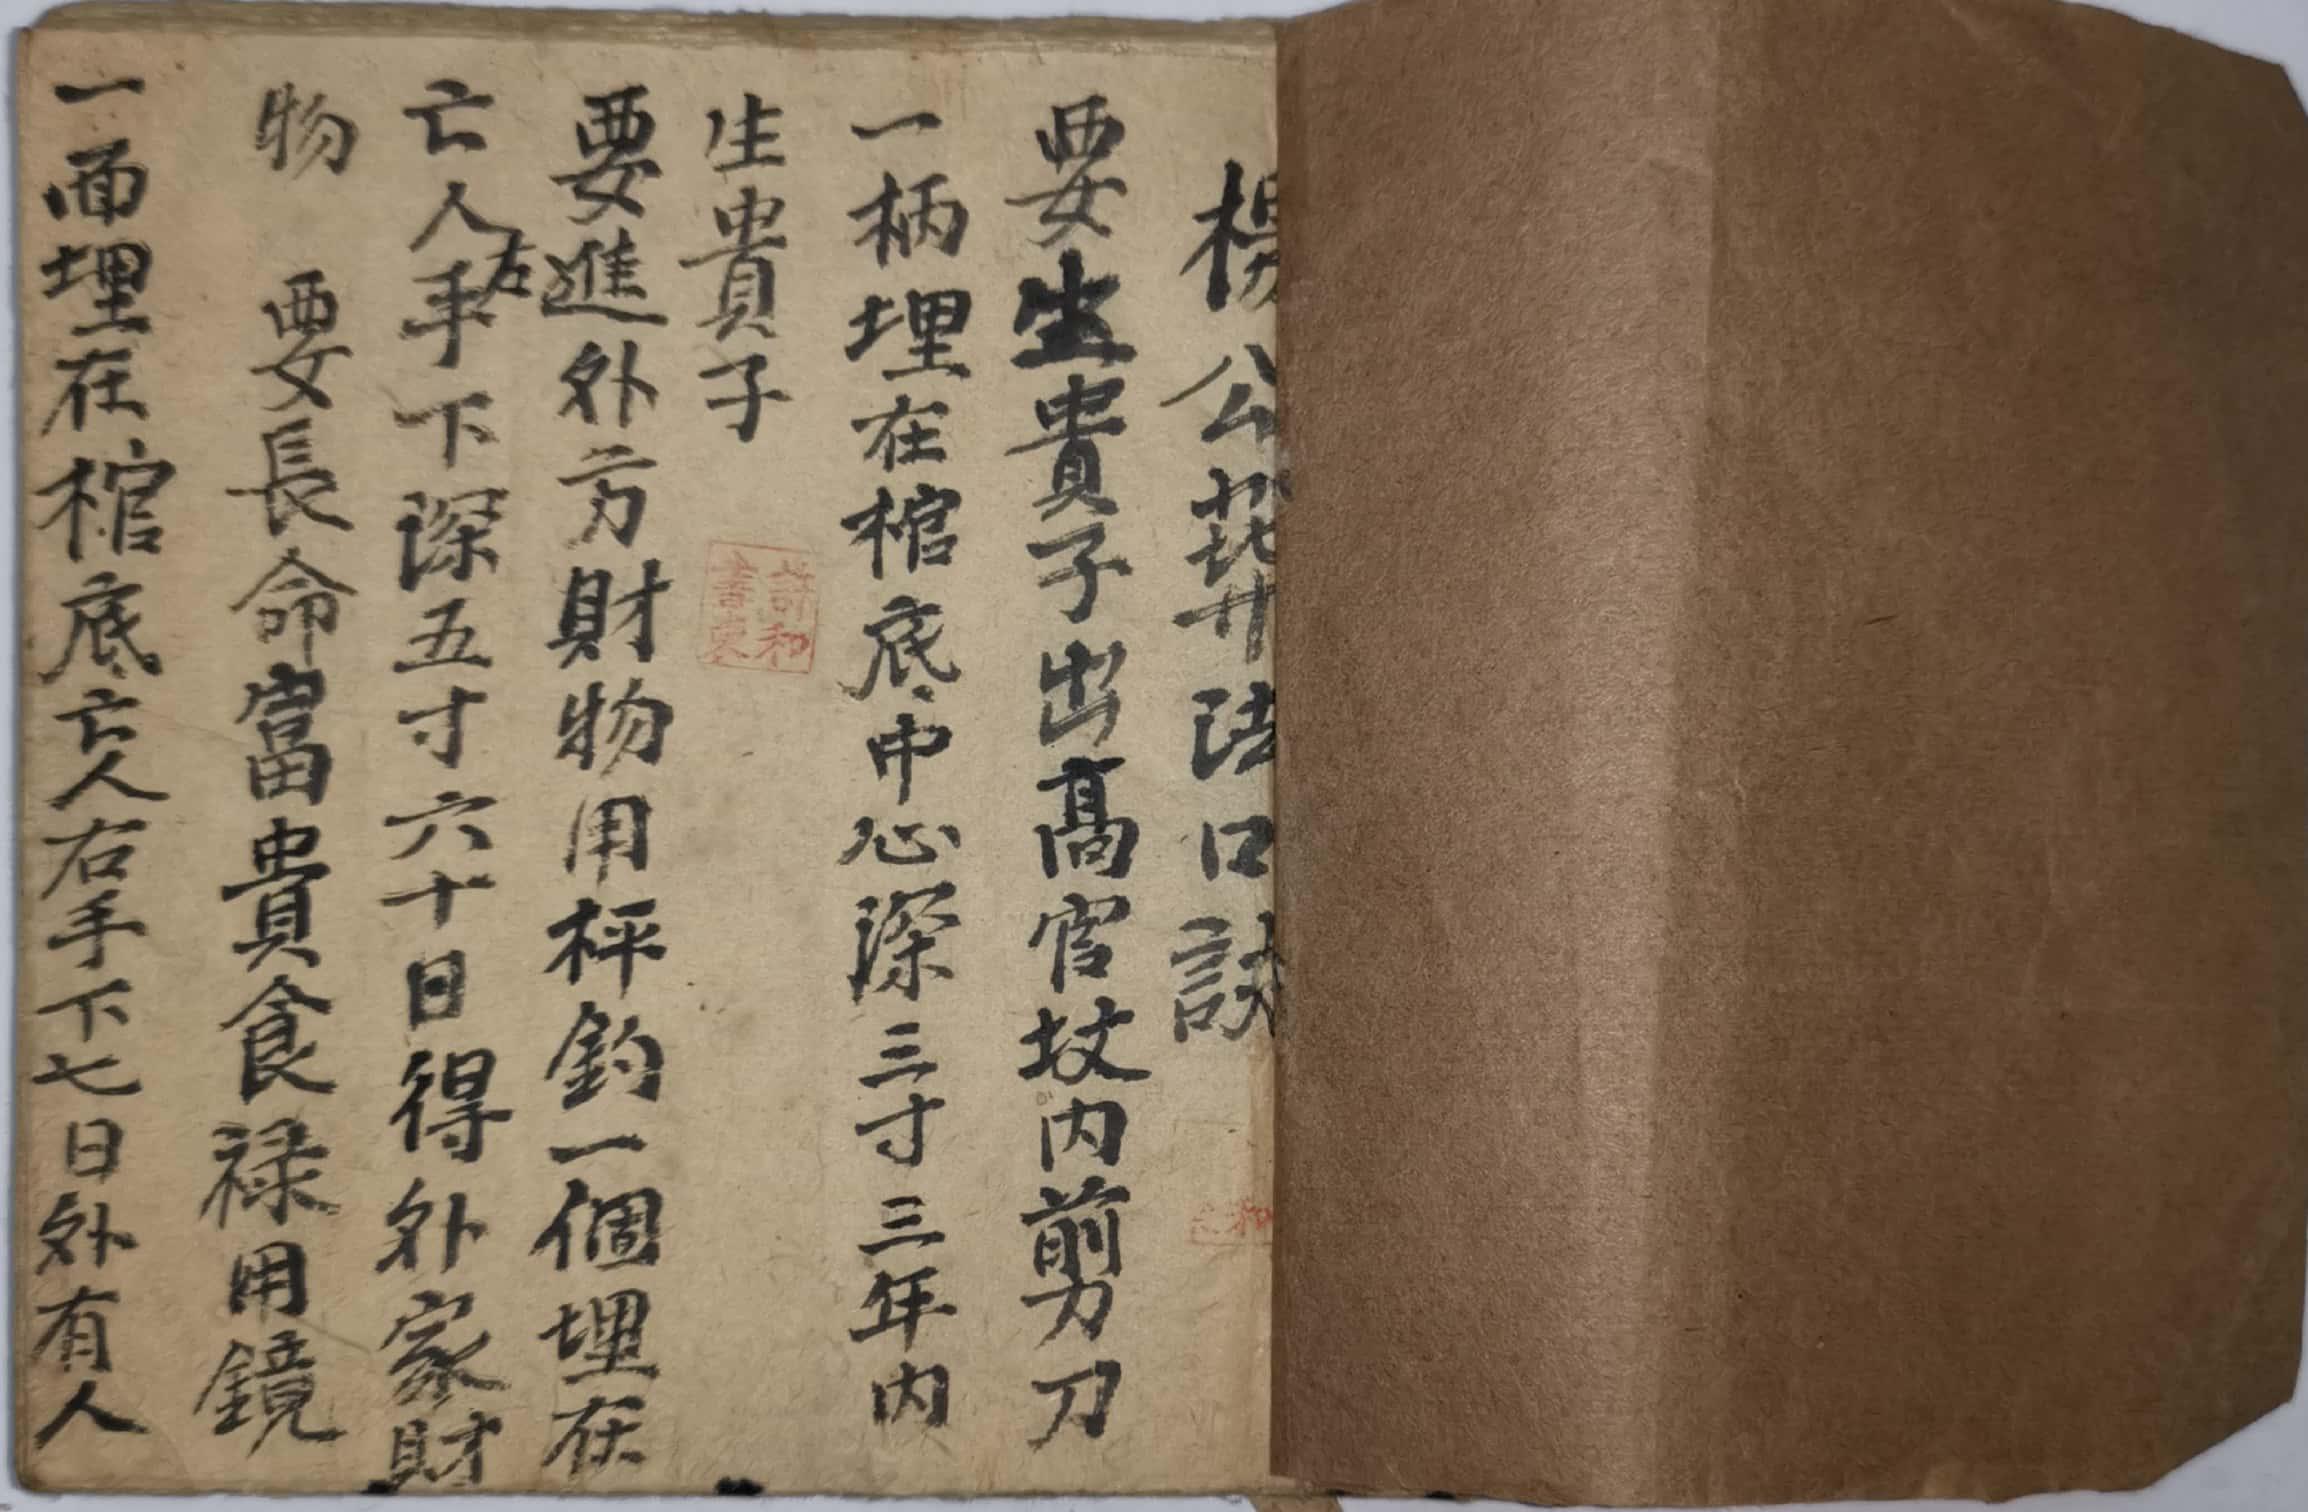 楊公葬法口訣
要生貴子出高官坟内剪刀
一柄埋在棺底中心深三寸三年内
生貴子
許和
書東
要進外方財物用枰鈎一個埋在
亡人左手下深五寸六十日得外家財
物 要長命富貴食禄用鏡
一面埋在棺底亡人右手下七日外有人